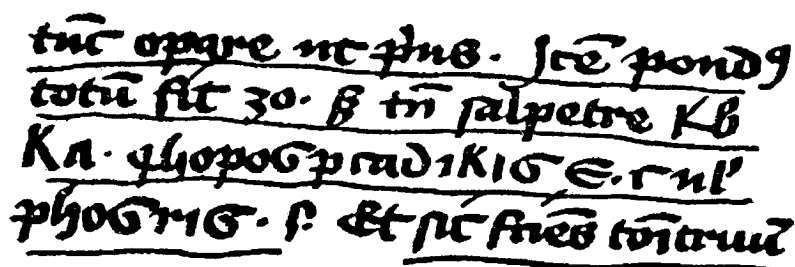 tūc opare ut p'us. Itē pondꝰ
totū sit 30. sꝫ tn̄ salpetre Kb
KA. qhopoGpcadiKIG Є.
phoGriG. s. Et sic faēs tōitruū